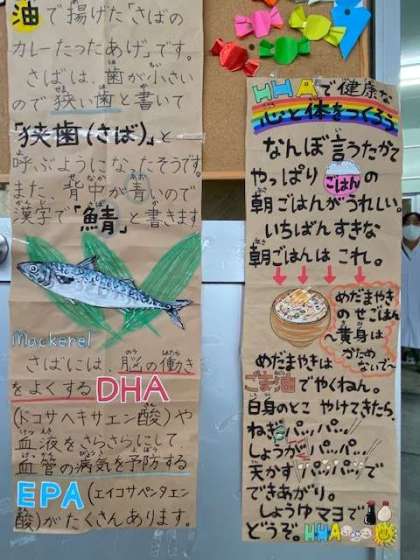 油で揚げた「さばの
カレーたつたあげ」です。
さばは、歯が小さい
ので狭い歯と書いて
「狭歯(さば)」と
呼ぶようになったそうです。
また、背中が青いので
漢字で「鯖」と書きます
Mackerel
さばには、脳の働き
をよくするDHA
(ドコサヘキサエン酸)や
血液をさらさらにして、
血管の病気を予防する
EPA(エイコサペンタエン
酸)がたくさんあります。
HHAで健康な
心と体をつくろう
なんぼ言うたかて
やっぱりごはんの
朝ごはんがうれしい。
いちばんすきな
朝ごはんはこれ。
めだまやき
のせごはん
〜黄身は
かため
ないで〜
めだまやきは
ごま油でやくねん。
白身のとこやけてきたら、
ねぎパッパッ
しょうがパッパッ
天かすパッパッで
できあがり。
しょうゆマヨで
どうぞ。HHA